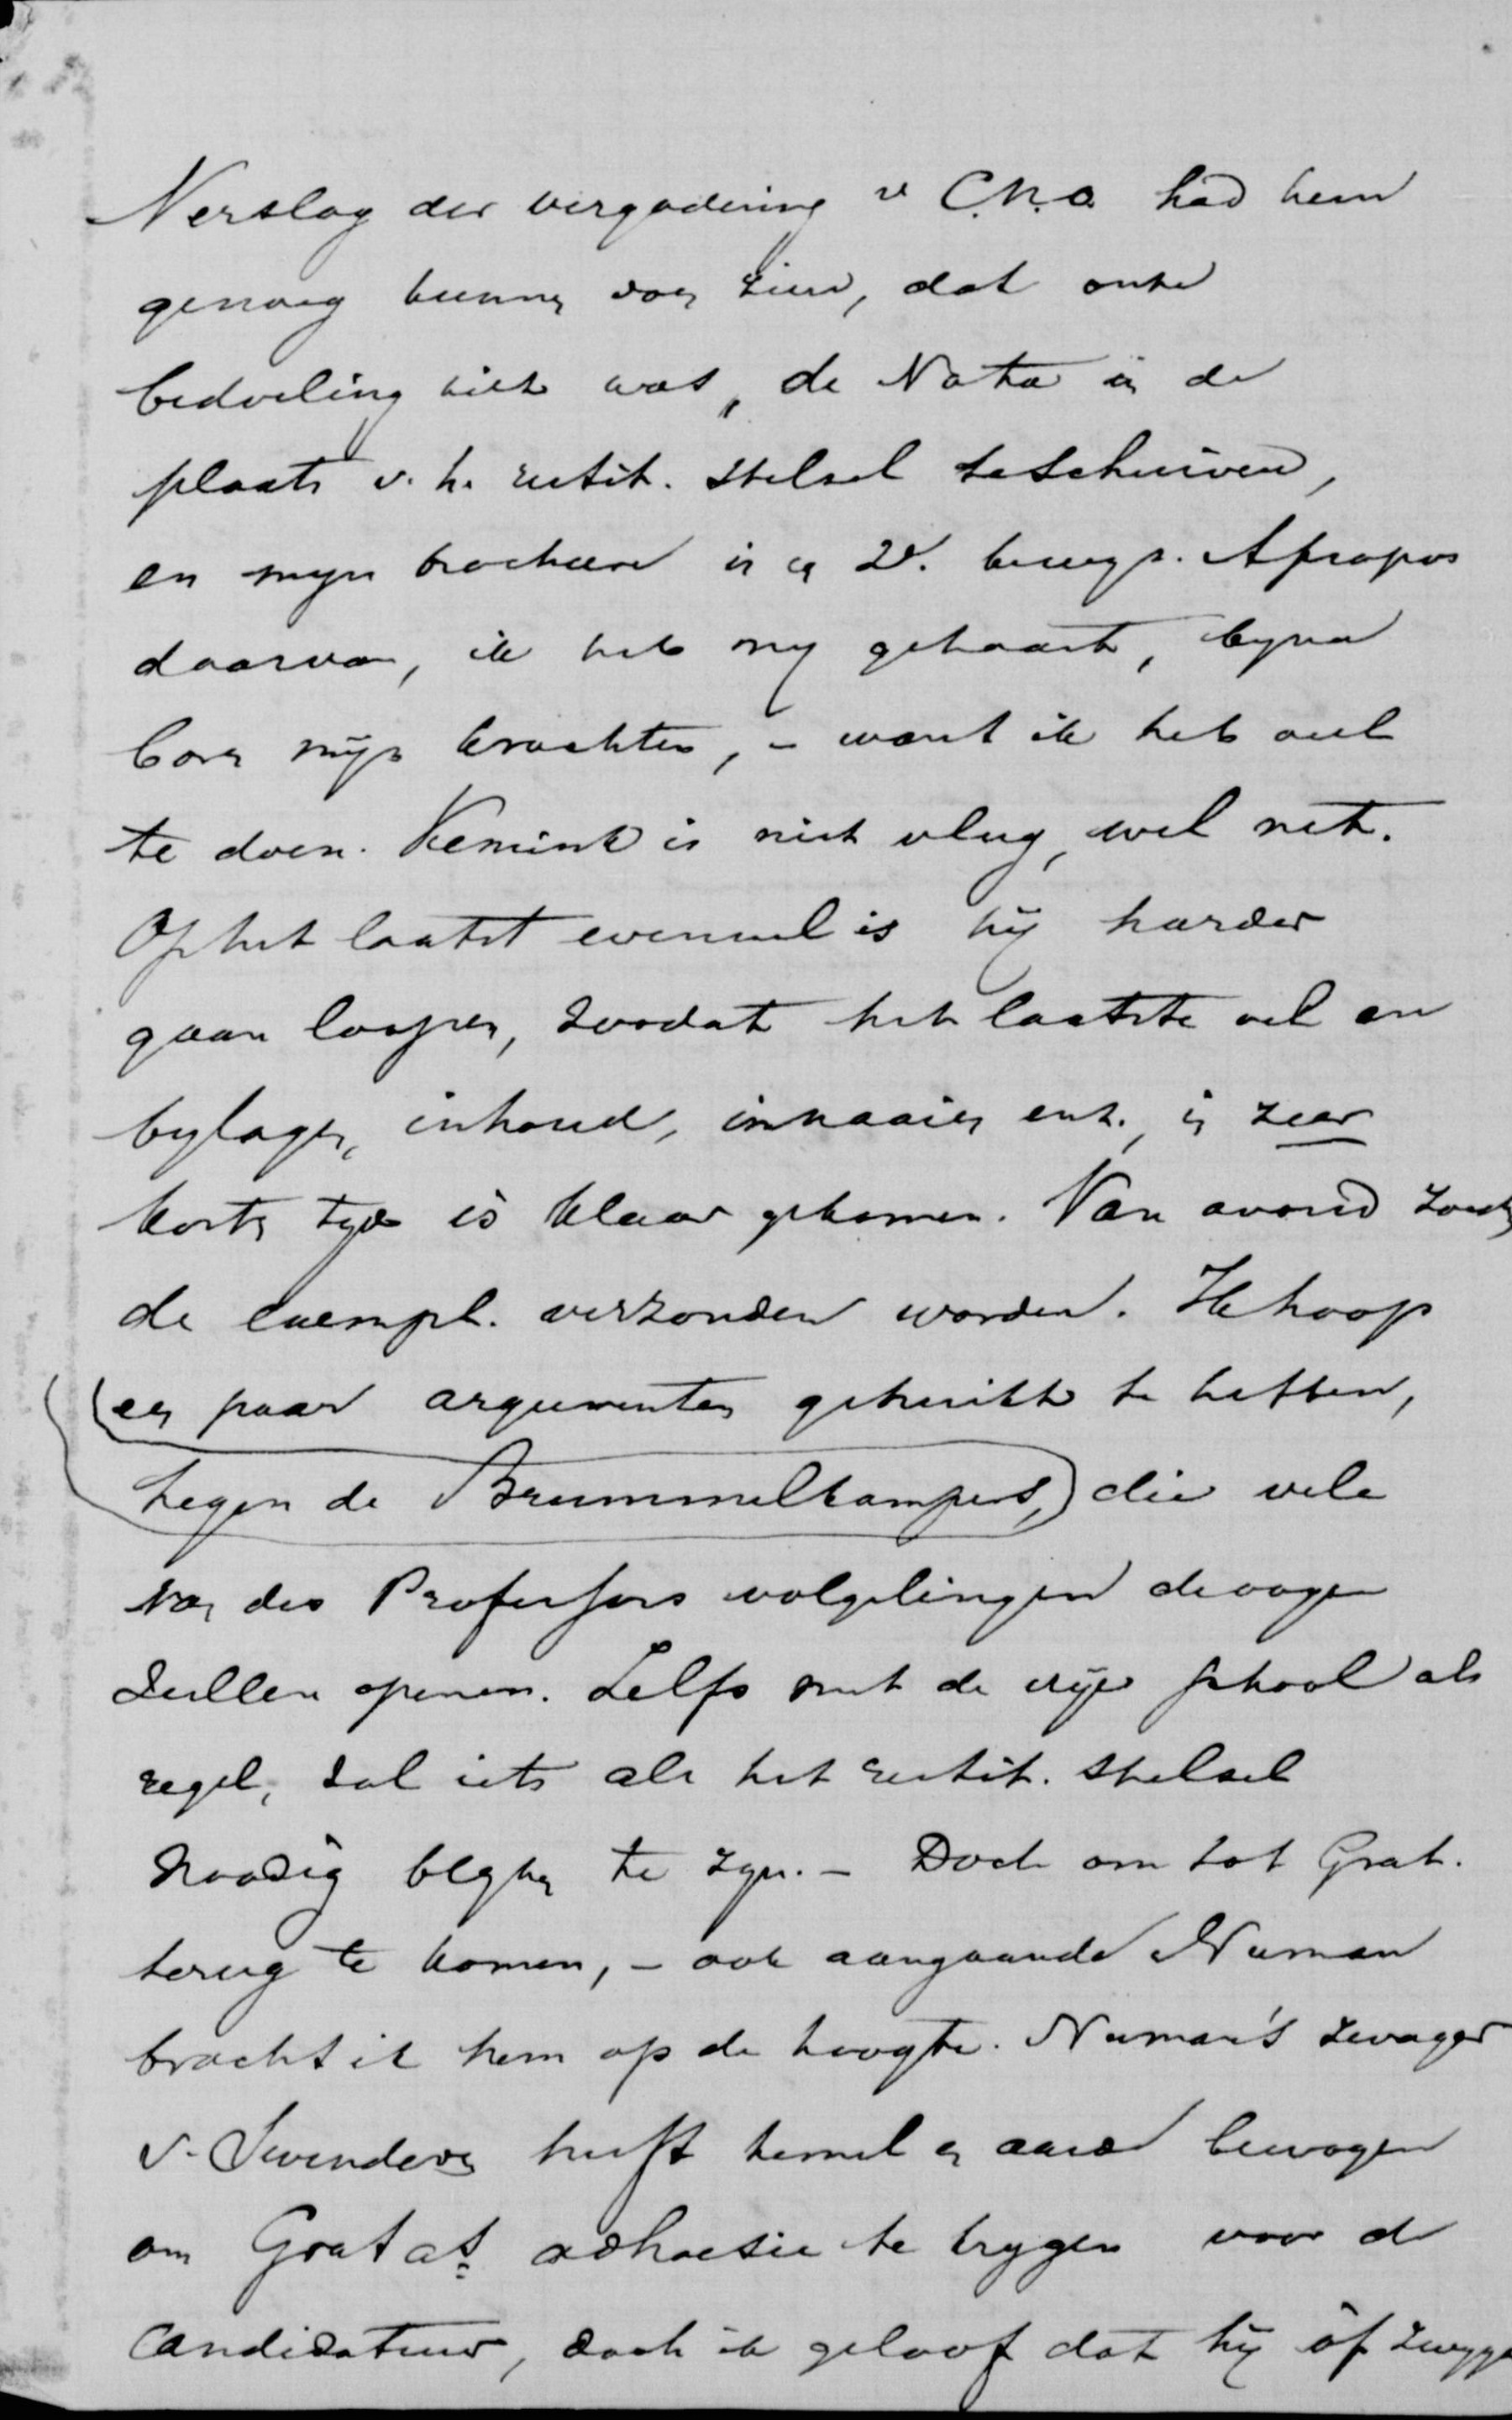 Verslag der vergadering v C.N.O. had hem
genoeg kunnen doen zien, dat onze
bedoeling niet was, de Nota in de
plaats v. h. restit. stelsel te schuiven,
en mijn brochure is een 2e. bewijs. Apropos
daarvan, ik heb mij gehaast, bijna
boven mijn krachten, – want ik heb veel
te doen. Kemink is niet vlug, wel net.
Op het laatst evenwel is hij harder
gaan loopen, zoodat het laatste vel en
bijlagen, inhoud, innaaien enz., in zeer
korten tijd is klaar gekomen. Van avond zouden
de exempl. verzonden worden. Ik hoop
een paar argumenten gebruikt te hebben,
tegen de Brummelkampers, die vele
van des Professors volgelingen de oogen
zullen openen. Zelfs met de vrije school als
regel, zal iets als het restit. stelsel
noodig blijken te zijn. – Doch om tot Grat.
terug te komen, – ook aangaande Numan
bracht ik hem op de hoogte. Numan's zwager
v. Swinderen heeft hemel en aarde bewogen
om Gratas adhaesie te krijgen voor de
candidatuur, doch ik geloof dat hij òf